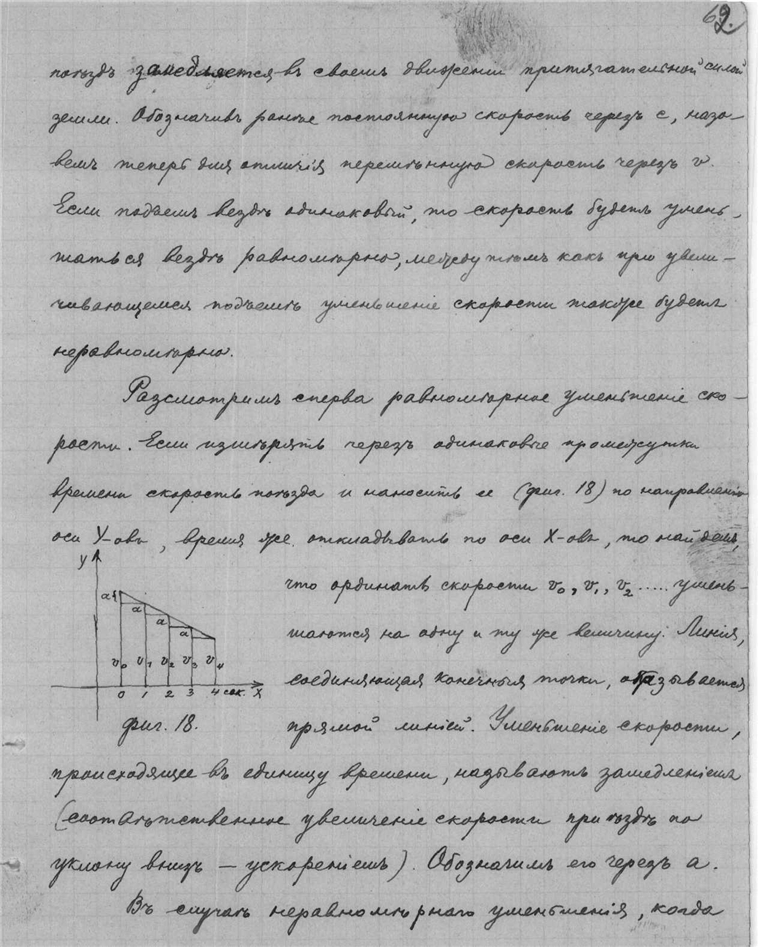 62.
поѣздъ замедляется въ своемъ движеніи притягательной силой
земли. Обозначивъ ранѣе постоянную скорость черезъ c, назо-
вемъ теперь для отличія перемѣнную скорость черезъ v.
Если подъемъ вездѣ одинаковый, то скорость будетъ умень-
шаться вездѣ равномѣрно, между тѣмъ какъ при увели-
чивающемся подъемѣ уменьшеніе скорости также будетъ
неравномѣрно.
Разсмотримъ сперва равномѣрное уменьшеніе ско-
рости. Если измѣрять черезъ одинаковые промежутки
времени скорость поѣзда и наносить ее (фиг. 18) по направленію
оси Y-овъ, время же откладывать по оси X-овъ, то найдемъ,
что ординаты скорости v₀, v₁, v₂ ..... умень-
шаются на одну и ту же величину. Линія,
соединяющая конечныя точки, оказывается
прямой линіей. Уменьшеніе скорости,
y
a a a a a
v₀ v₁ v₂ v₃ v₄
0 1 2 3 4 сек. X
фиг. 18.
происходящее въ единицу времени, называютъ замедленіемъ
(соотвѣтственное увеличеніе скорости при ѣздѣ по
уклону внизъ – ускореніемъ). Обозначимъ его черезъ a.
Въ случаѣ неравномѣрнаго уменьшенія, когда